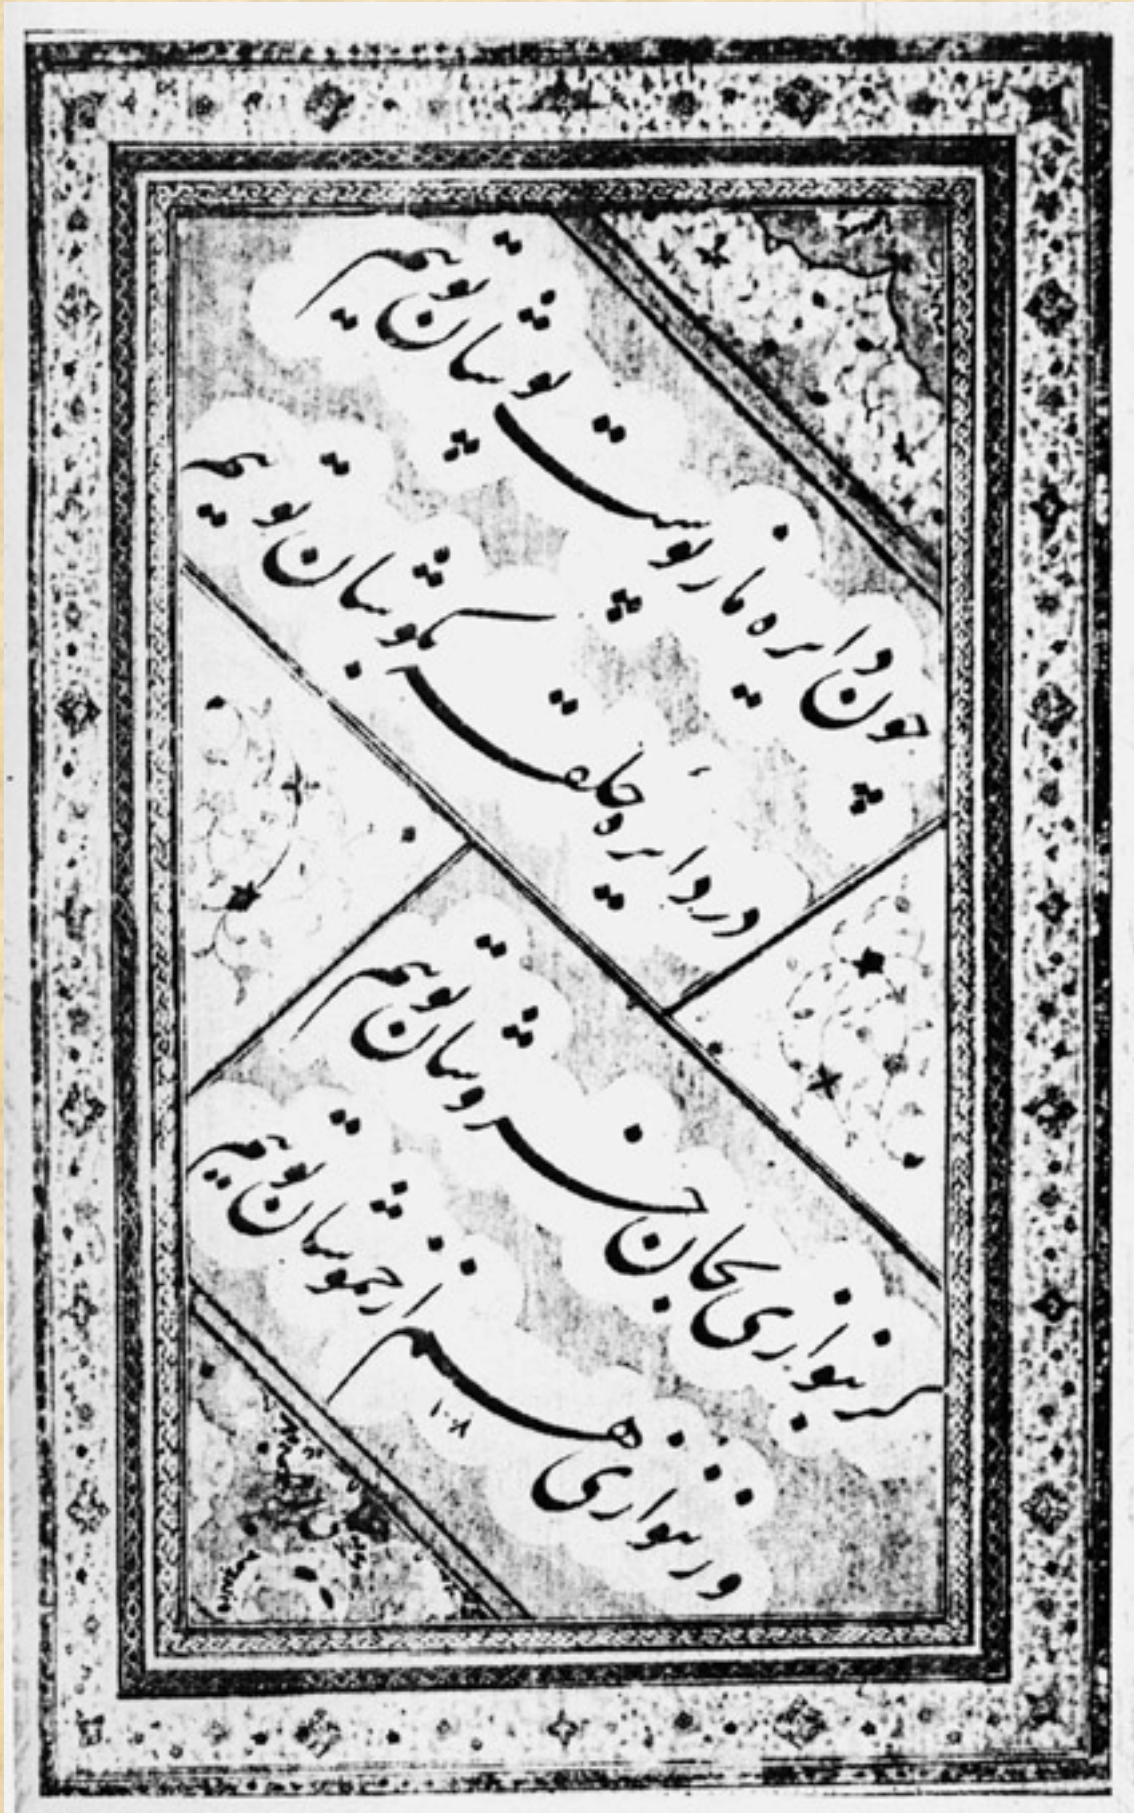 چون دایره ما ز پوست پوشان تویم
در دایره حلقه بگوشان تویم
گر بنوازی بجان خروشان تویم
ور ننوازی هم از خموشان تویم
۱۰۰۸